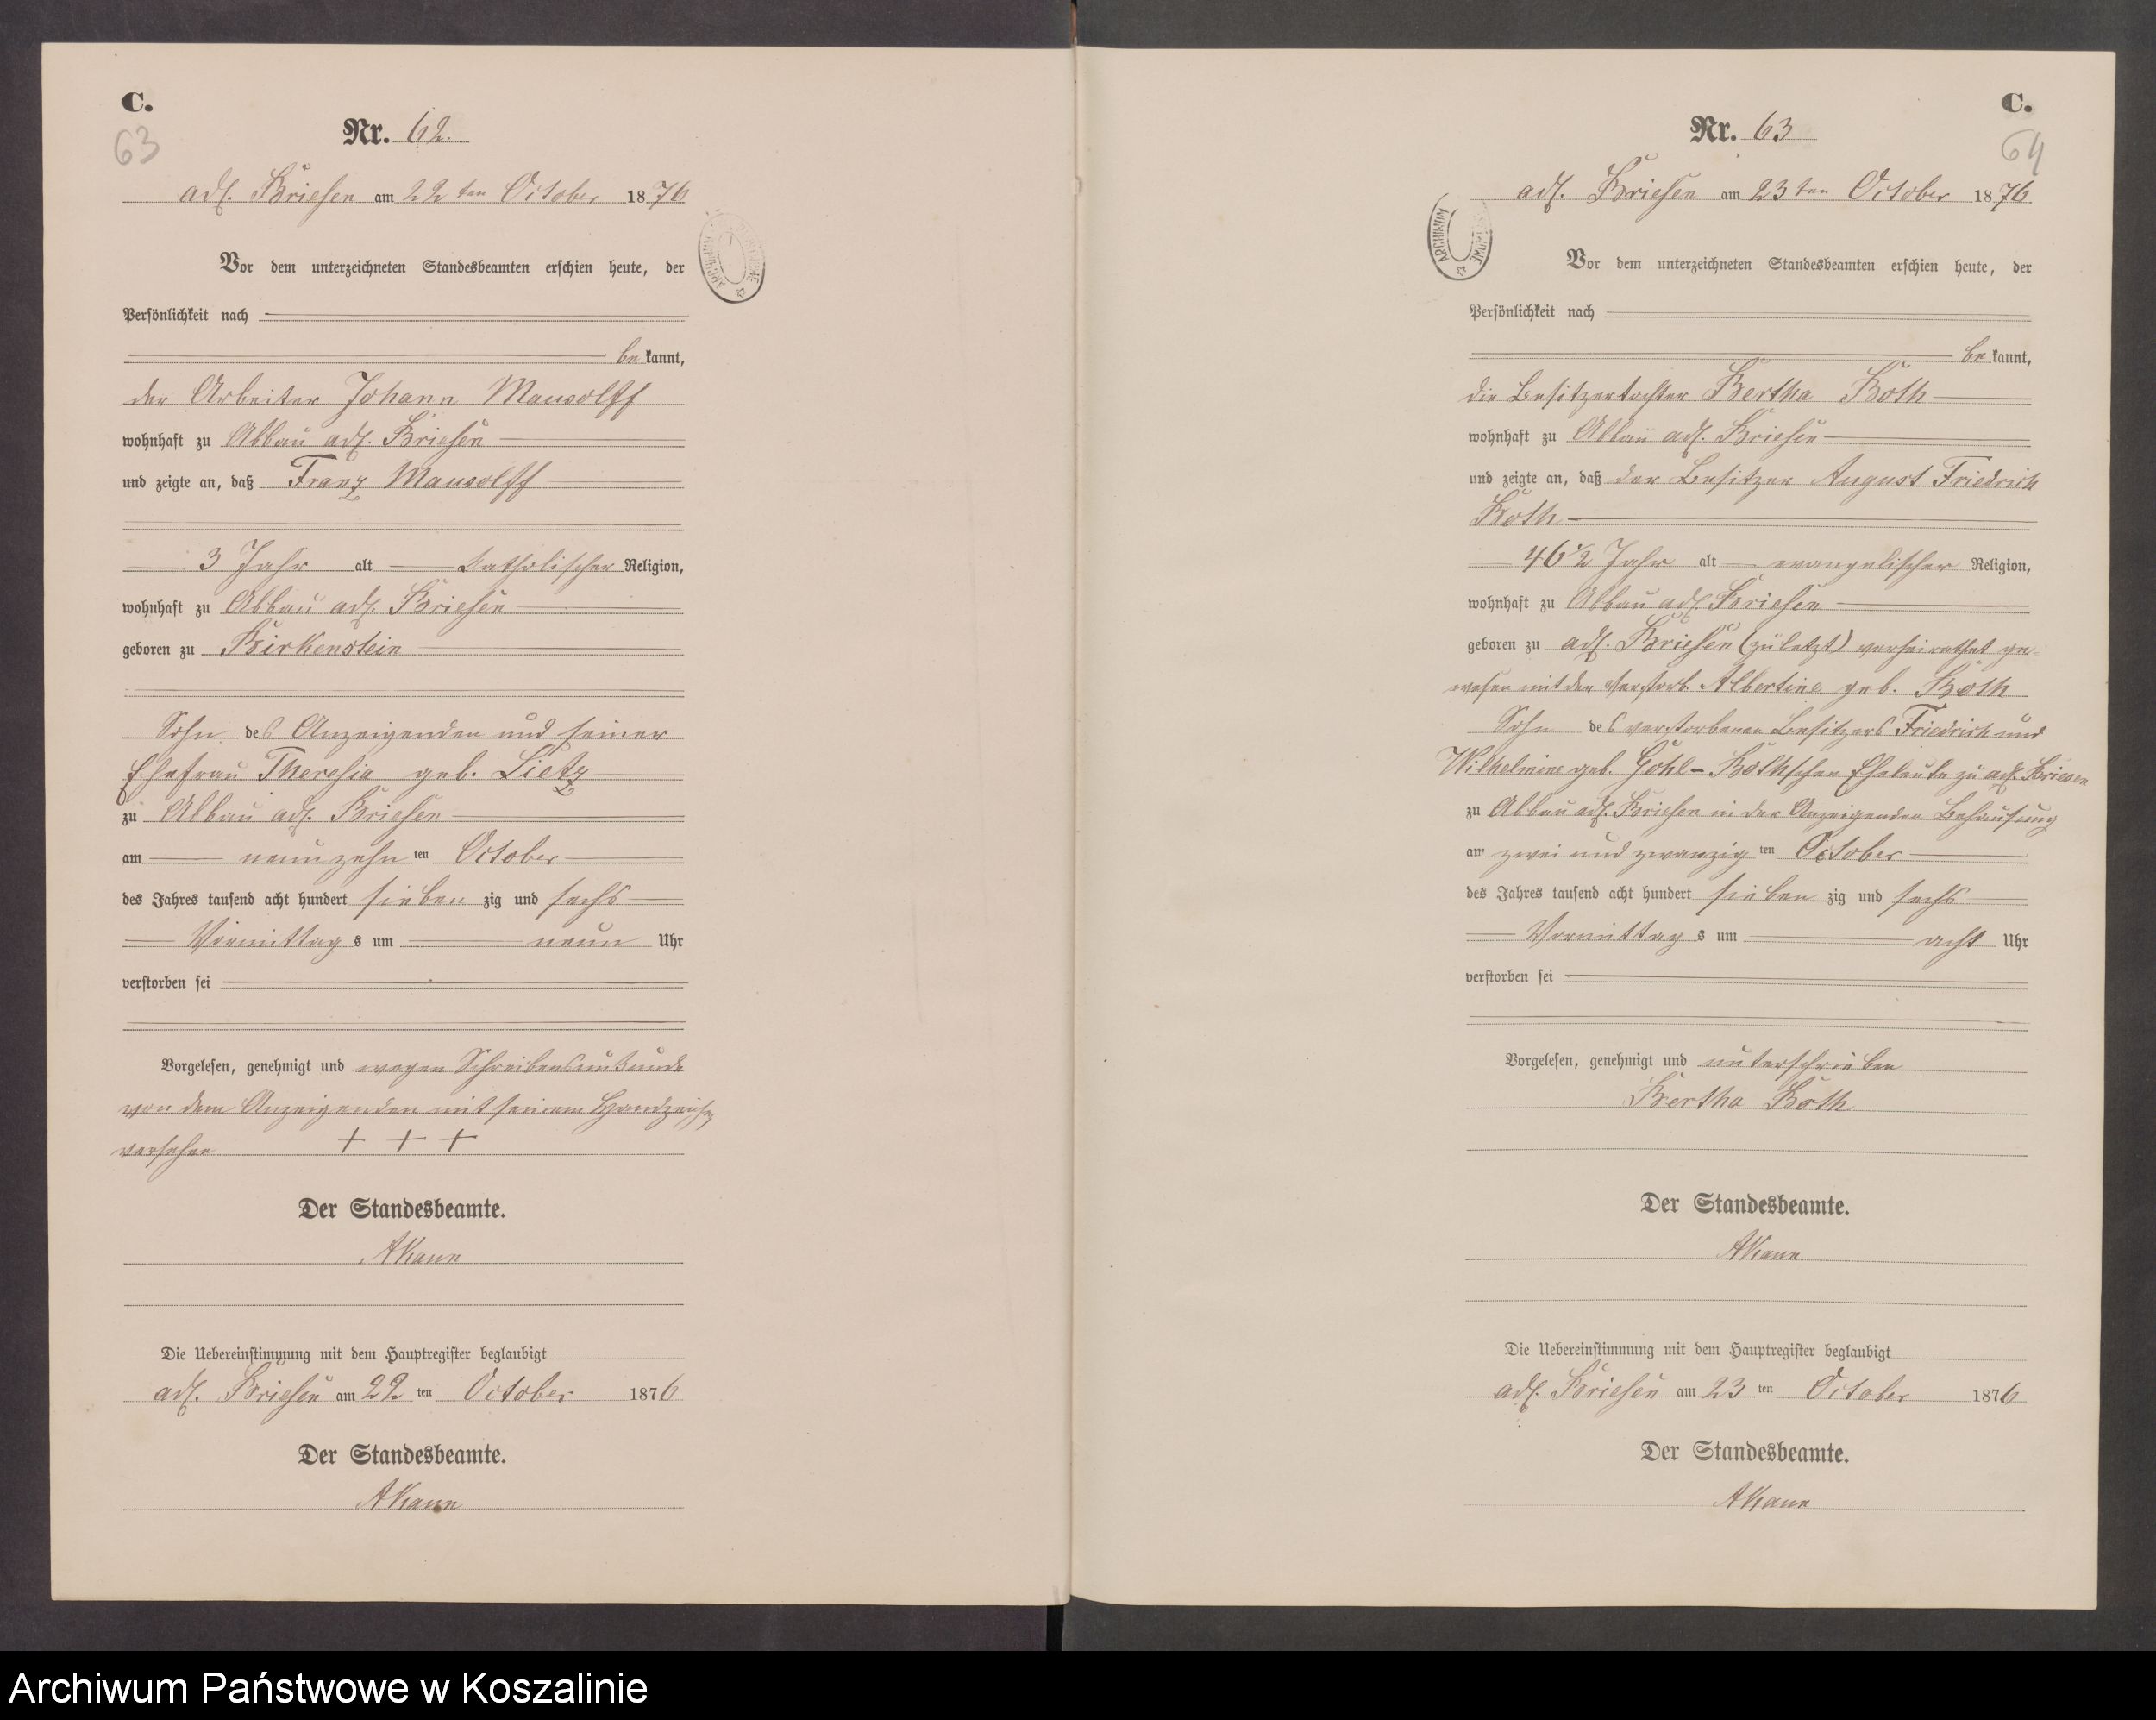 C.
63
Nr. 62.
adl. Briesen am 22ten October 1876
Vor dem unterzeichneten Standesbeamten erschien heute, der
Persönlichkeit nach
be kannt,
der Arbeiter Johann Mausolff
wohnhaft zu Abbau adl. Briesen
und zeigte an, daß Franz Mausolff
3 Jahr alt katholischer Religion,
wohnhaft zu Abbau adl. Briesen
geboren zu Birkenstein
Sohn des Anzeigenden und seiner
Ehefrau Theresia geb. Lietz
zu Abbau adl. Briesen
am neunzehn ten October
des Jahres tausend acht hundert sieben zig und sechs
Vormittag s um neun Uhr
verstorben sei
Vorgelesen, genehmigt und wegen Schreibensunkunde
von dem Anzeigenden mit seinem Handzeichen
versehen + + +
Der Standesbeamte.
AKann
Die Uebereinstimmung mit dem Hauptregister beglaubigt
adl. Briesen am 22 ten October 1876
Der Standesbeamte.
AKann
C.
64
Nr. 63
adl. Briesen am 23ten October 1876
ARCHIWUM
Vor dem unterzeichneten Standesbeamten erschien heute, der
Persönlichkeit nach
be kannt,
die Besitzertochter Bertha Both
wohnhaft zu Abbau adl. Briesen
und zeigte an, daß der Besitzer August Friedrich
Both
46 1/2 Jahr alt evangelischer Religion,
wohnhaft zu Abbau adl. Briesen
geboren zu adl. Briesen (zuletzt) verheirathet ge-
wesen mit der verstorb. Albertine geb. Both
Sohn des verstorbenen Besitzers Friedrich und
Wilhelmine geb. Gohl-Bothschen Eheleute zu adl. Briesen
zu Abbau adl. Briesen in der Anzeigenden Behausung
am zwei und zwanzig ten October
des Jahres tausend acht hundert sieben zig und sechs
Vormittag s um acht Uhr
verstorben sei
Vorgelesen, genehmigt und unterschrieben
Bertha Both
Der Standesbeamte.
AKann
Die Uebereinstimmung mit dem Hauptregister beglaubigt
adl. Briesen am 23 ten October 1876
Der Standesbeamte.
AKann
Archiwum Państwowe w Koszalinie